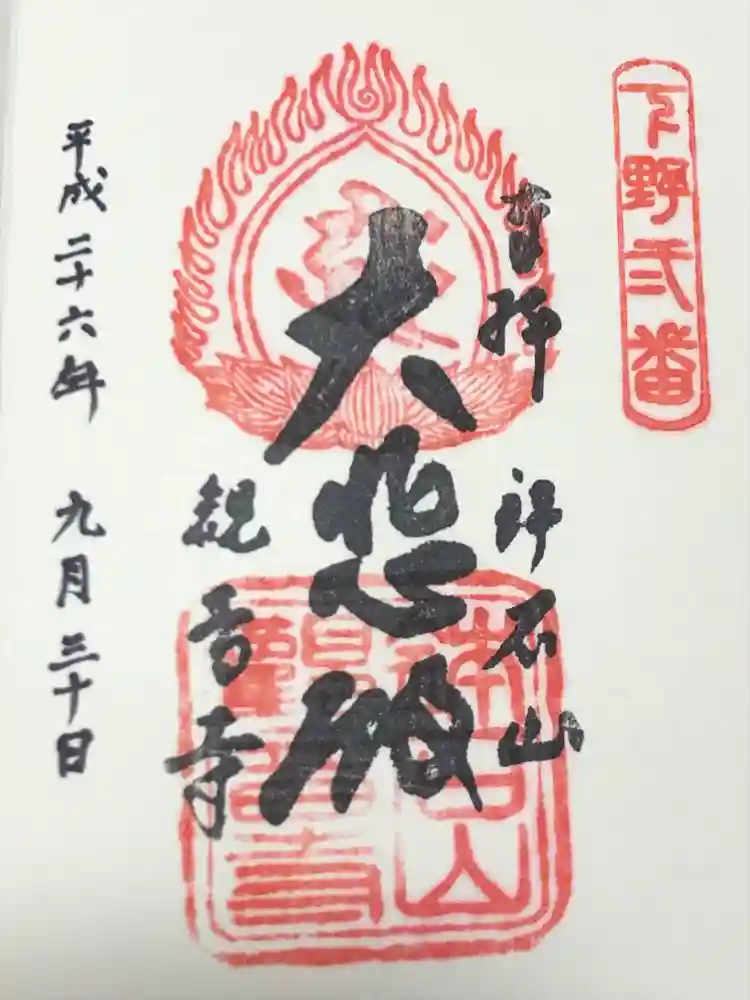 下野弐番
奉拝
神石山
大悲殿
観音寺
平成二十六年 九月三十日